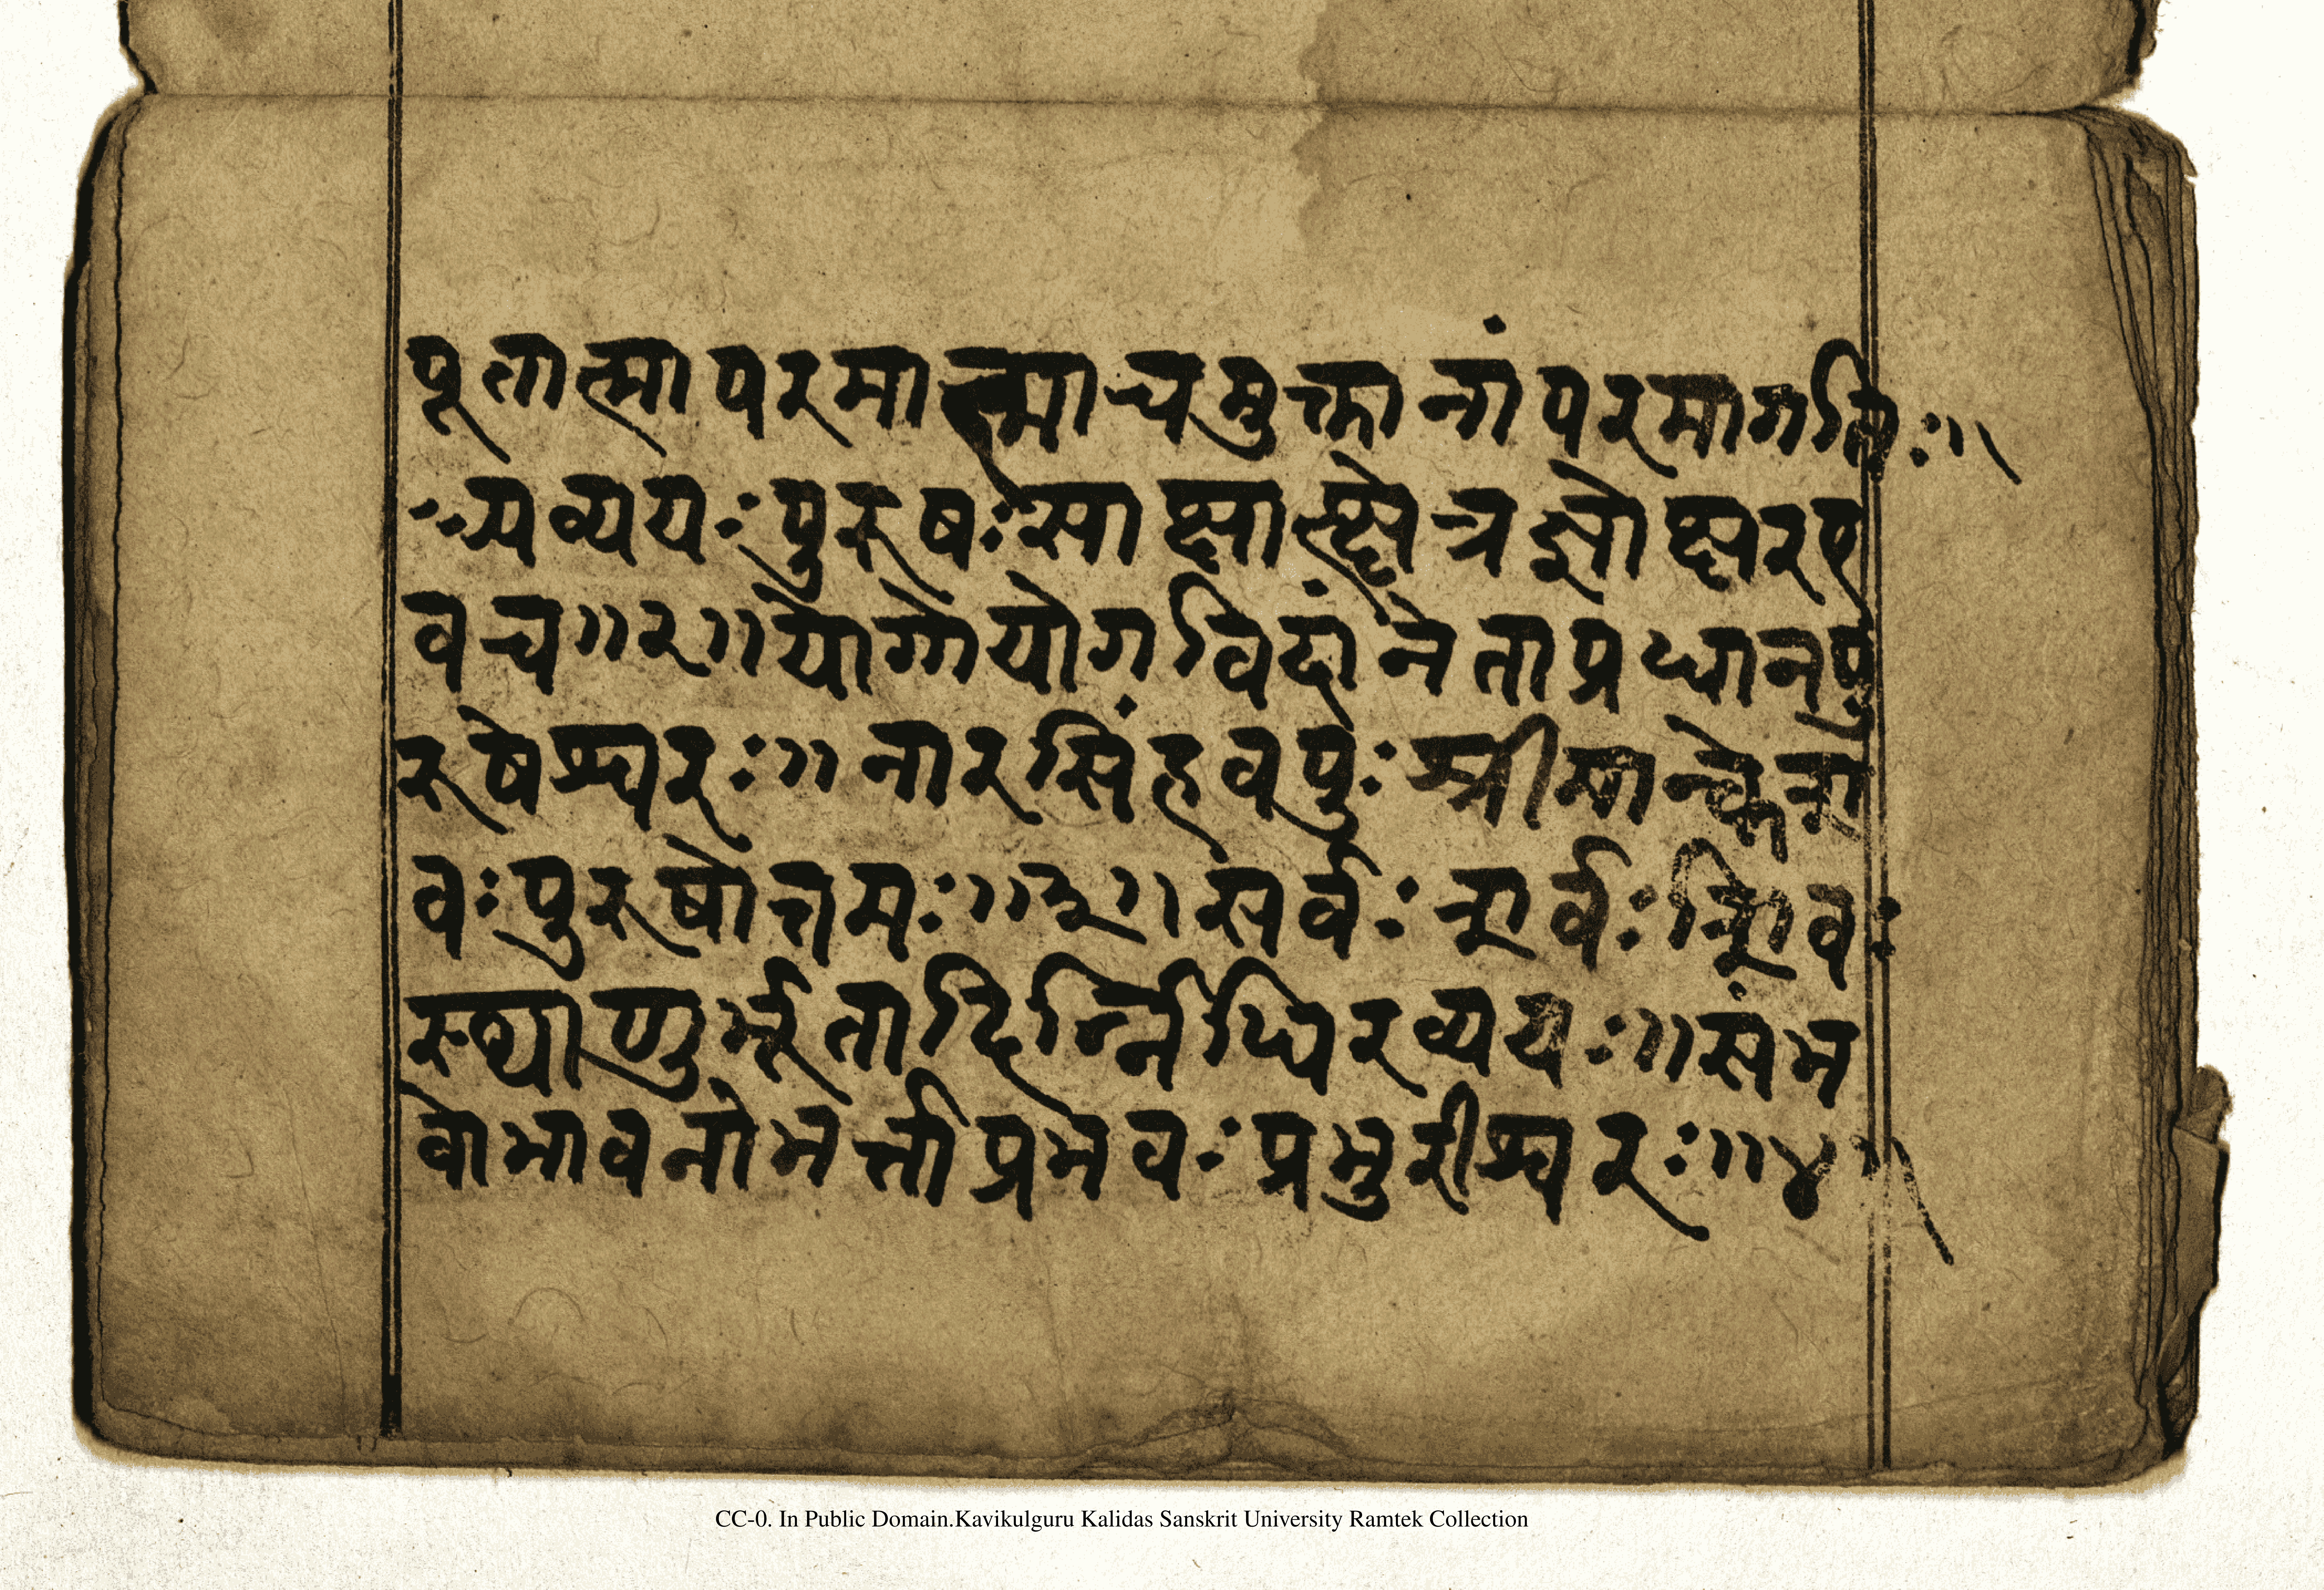 पूतात्मापरमात्माचमुक्तानांपरमागतिः॥
अव्ययःपुरुषःसाक्षात्क्षेत्रज्ञोक्षरए
वच॥२॥योगोयोगविदांनेताप्रधानपु
रुषेश्वरः॥नारसिंहवपुःश्रीमान्केश
वःपुरुषोत्तमः॥३॥सर्वःशर्वःशिवः
स्थाणुर्भूतादिर्न्निधिरव्ययः॥संभ
वोभावनोभर्त्ताप्रभवःप्रभुरीश्वरः॥४॥
CC-0. In Public Domain.Kavikulguru Kalidas Sanskrit University Ramtek Collection